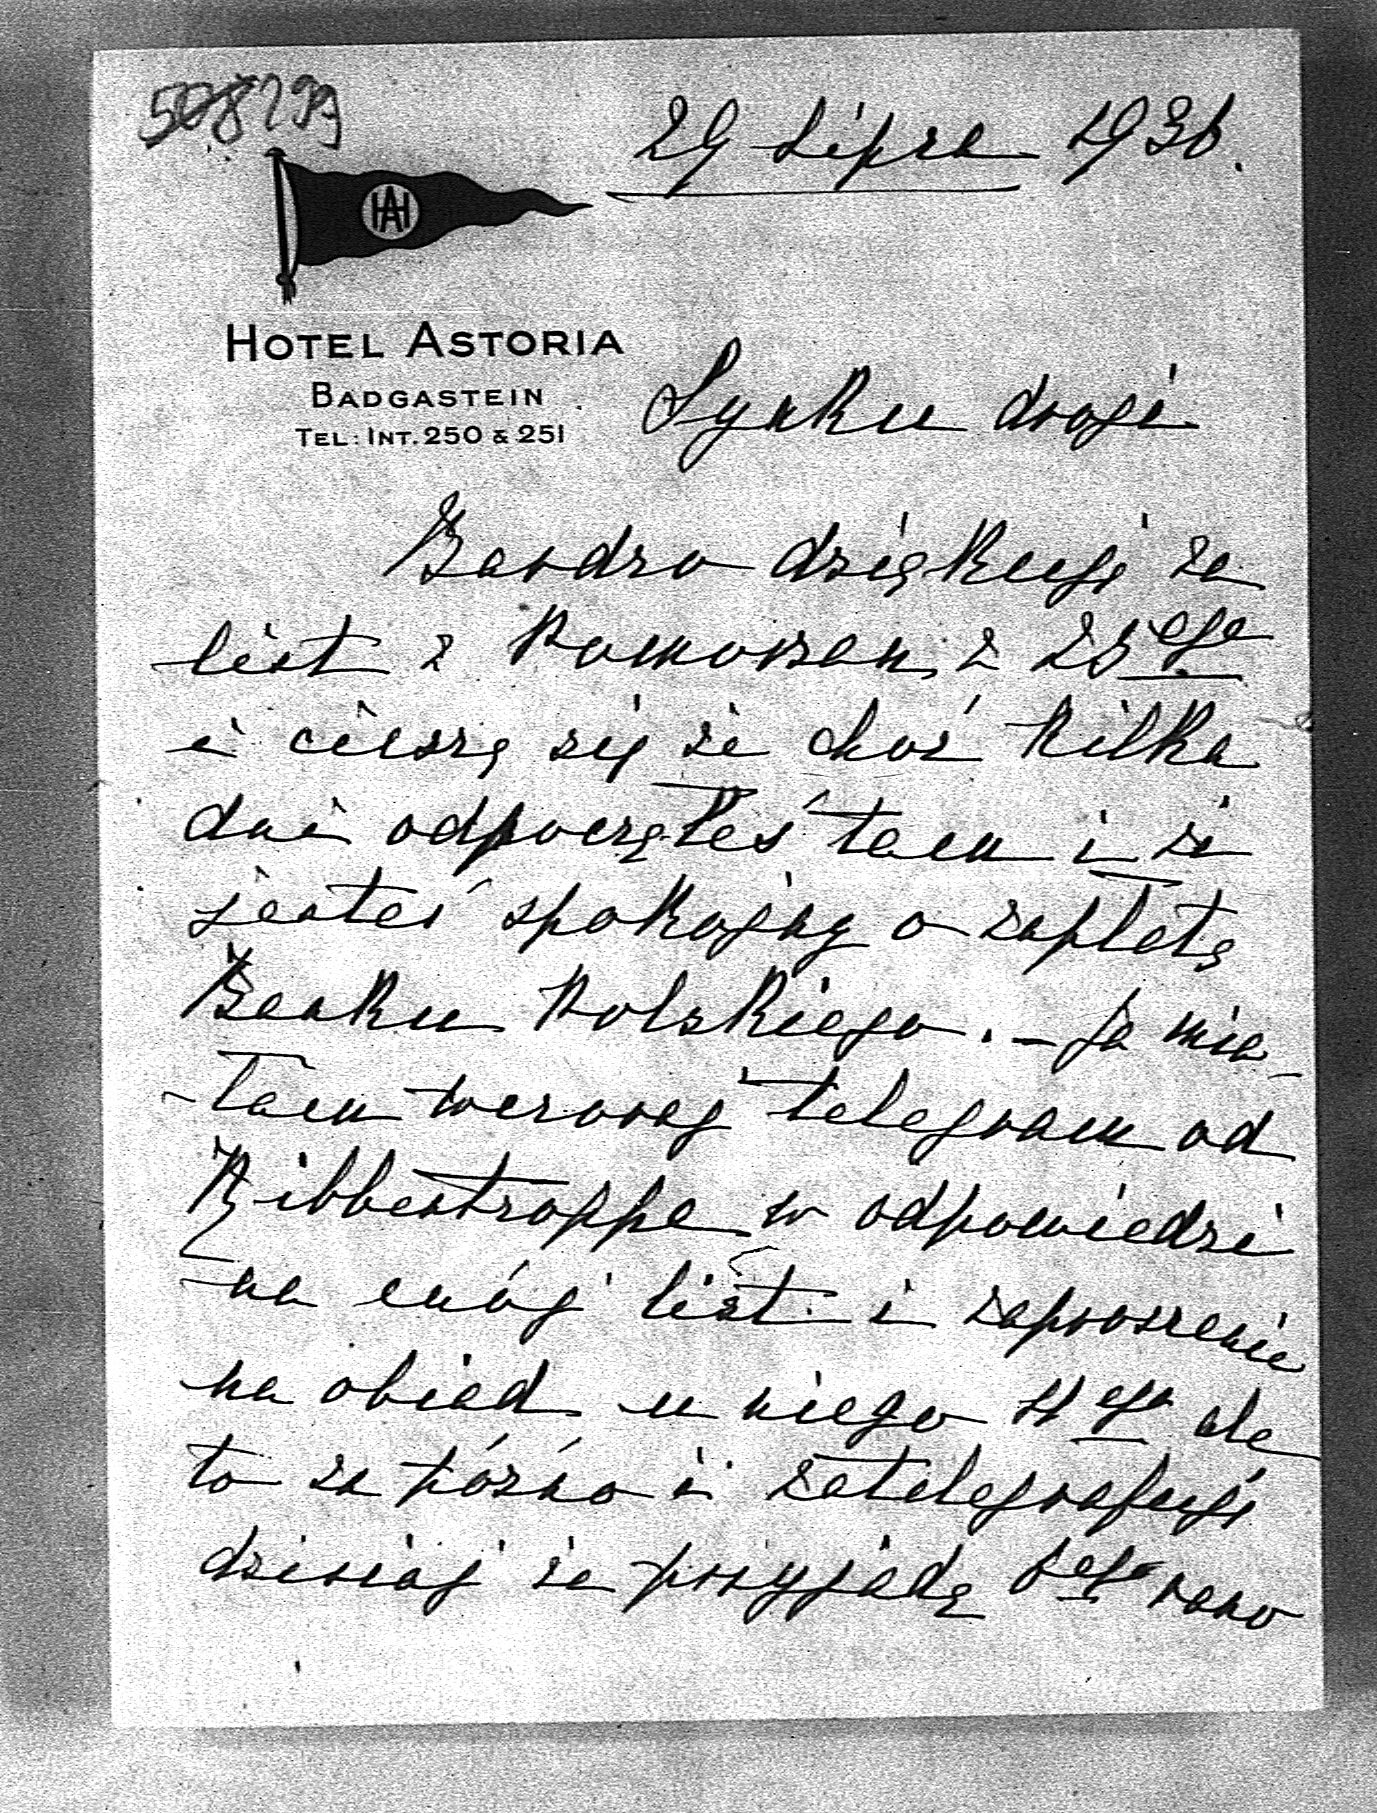 508299
29 Lipca 1936.
HA
HOTEL ASTORIA
BADGASTEIN
TEL: INT. 250 & 251
Synku drogi
Bardzo dziękuję za
list z Pomorzan z 25ego
i cieszę się że choć kilka
dni odpocząłeś tam i że
jesteś spokojny o zapłatę
Banku Polskiego. – Ja mia-
-łam wczoraj telegram od
Ribbentroppa w odpowiedzi
na mój list i zaproszenie
na obiad u niego 4ego ale
to za późno i zatelegrafuję
dzisiaj że przyjadę 6ego rano